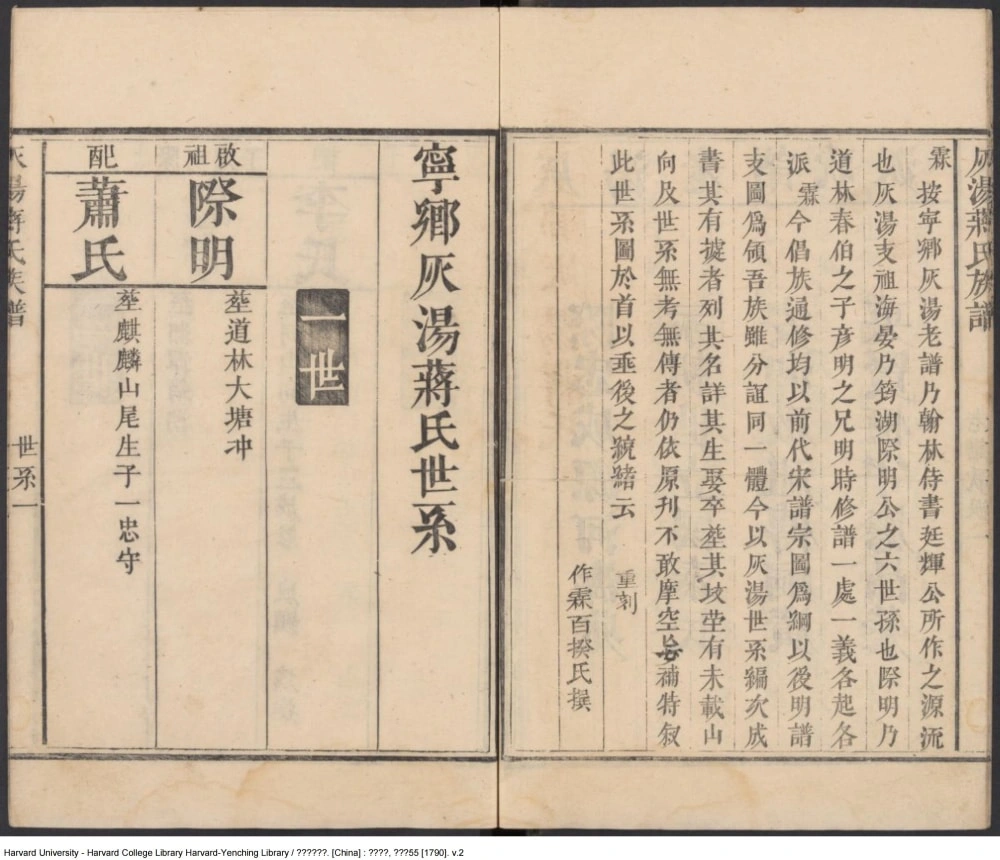 灰湯蔣氏族譜
霖按寧鄉灰湯老譜乃翰林侍書廷輝公所作之源流
也灰湯支祖海晏乃筠湖際明公之六世孫也際明乃
道林春伯之子彥明之兄明時修譜一處一義各起各
派霖今倡族通修均以前代宋譜宗圖爲綱以後明譜
支圖爲領吾族雖分誼同一體今以灰湯世系編次成
書其有據者列其名詳其生娶卒塟其坟塋有未載山
向及世系無考無傳者仍依原刊不敢摩空妄補特叙
此世系圖於首以垂後之統緒云
重刻
作霖百揆氏撰
寧鄉灰湯蔣氏世系
一世
啟祖
際明
塟道林大塘冲
配
蕭氏
塟麒麟山尾生子一忠守
灰湯蔣氏族譜
世系一
Harvard University - Harvard College Library Harvard-Yenching Library / ??????. [China] : ????, ???55 [1790]. v.2